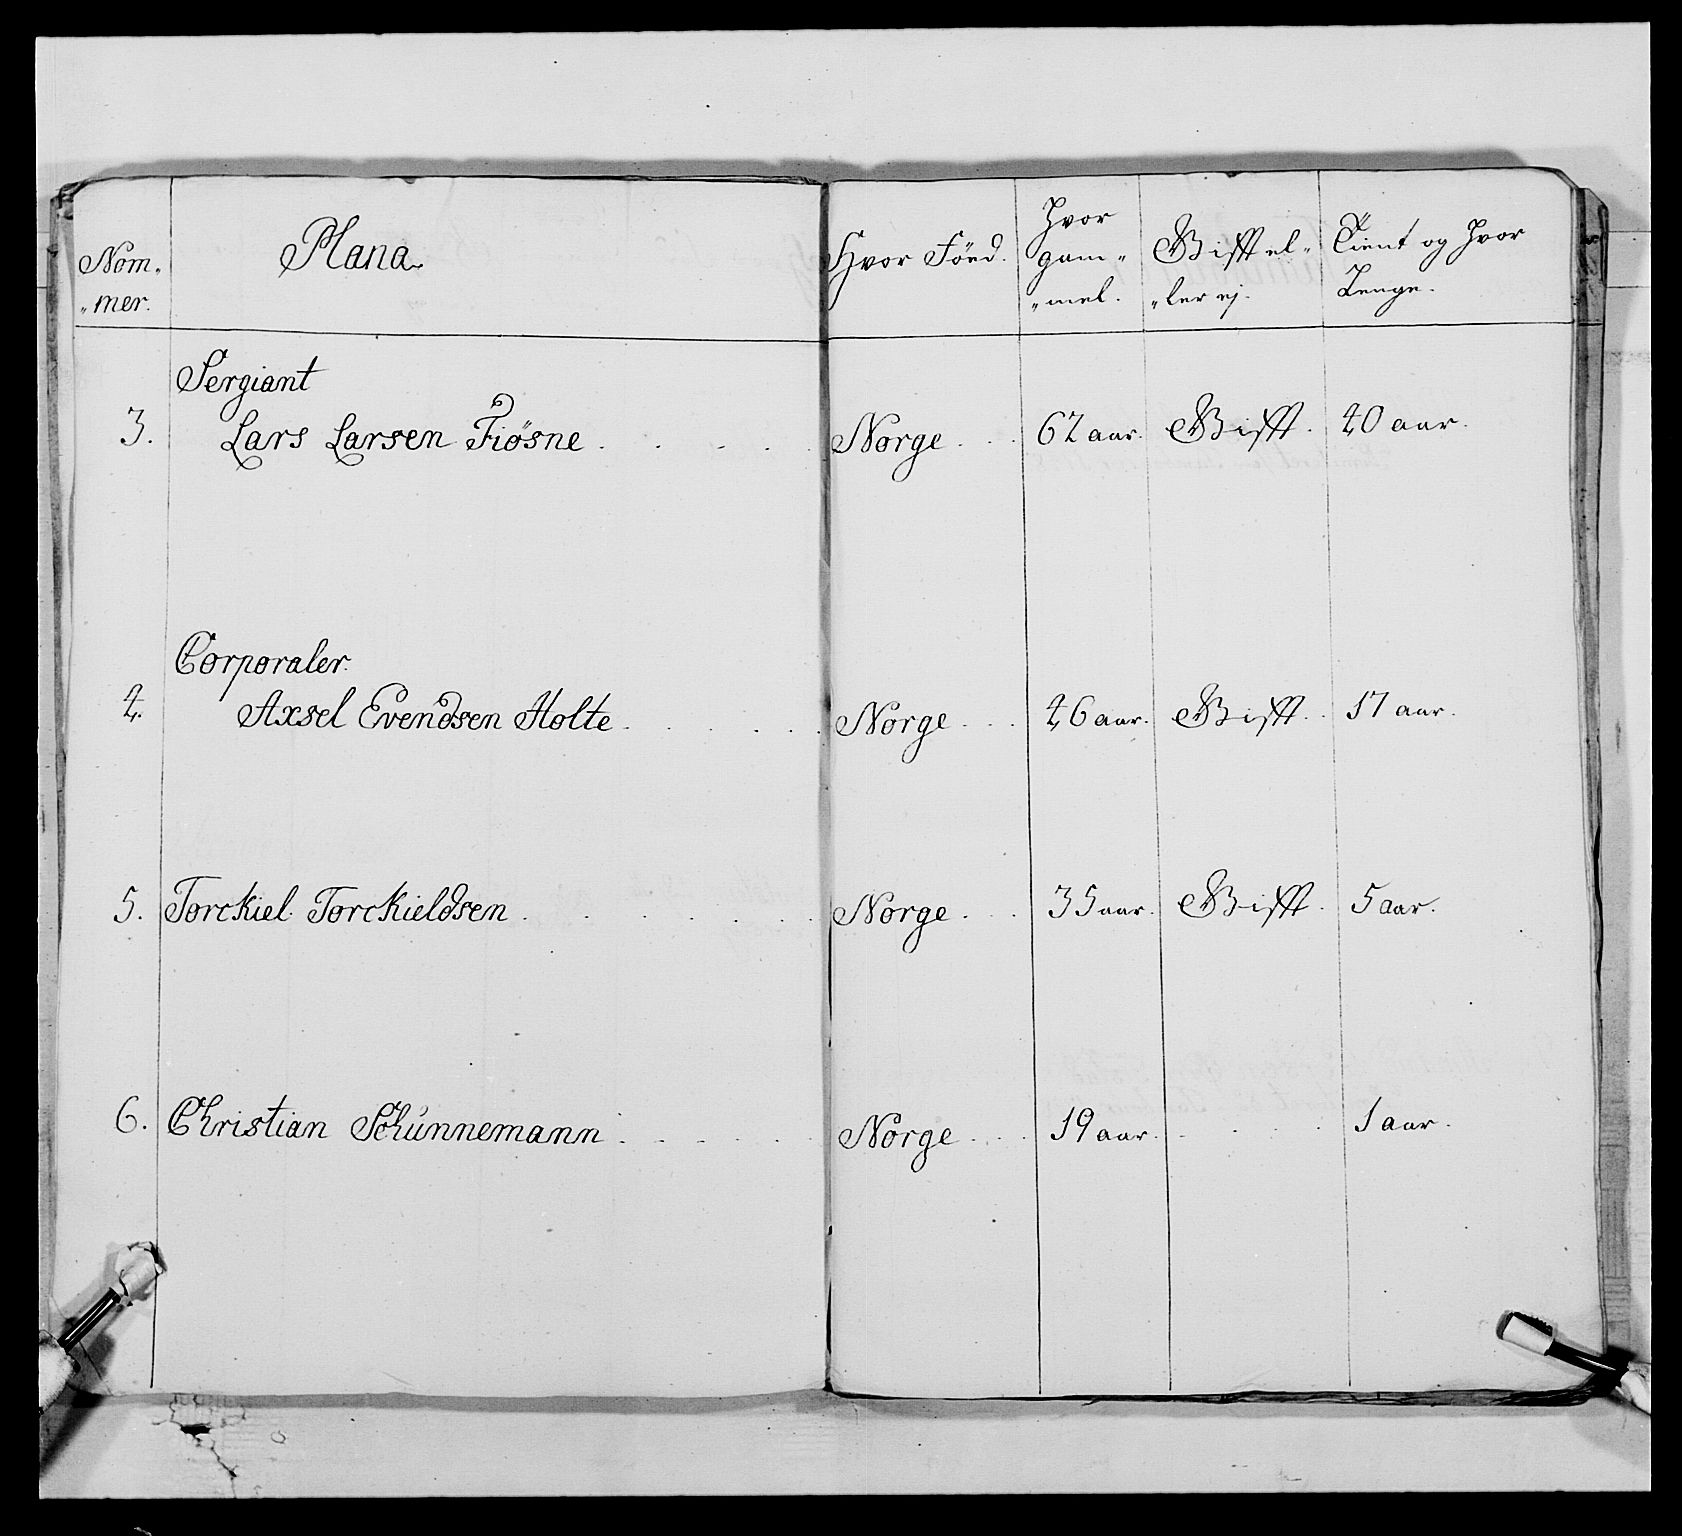 Nom„
„mer.
Plana
Hvor Föed.
Hvor
gam„
„mel.
Gifft el„
„ler ej.
Tient og Hvor
Lenge.
Sergiant
3. Lars Larsen Fiösne Norge 62 aar. Gifft. 20 aar.
Corporaler.
4. Axsel Evendsen Holte Norge 46 aar. Gifft. 17 aar.
5. Torckiel Torckieldsen Norge 35 aar. Gifft. 5 aar.
6. Christian Schünnemann Norge 19 aar. 1 aar.